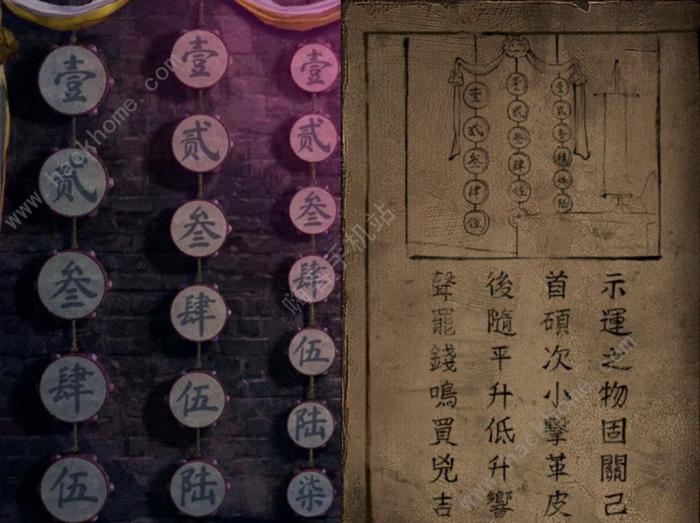 壹贰叁肆伍
壹贰叁肆伍陆
壹贰叁肆伍陆柒
壹贰叁肆伍
壹贰叁肆伍
示運之物固關己
首碩次小擊革皮
後隨平升低升響
聲罷錢鳴買兇吉
www.hackhome.com